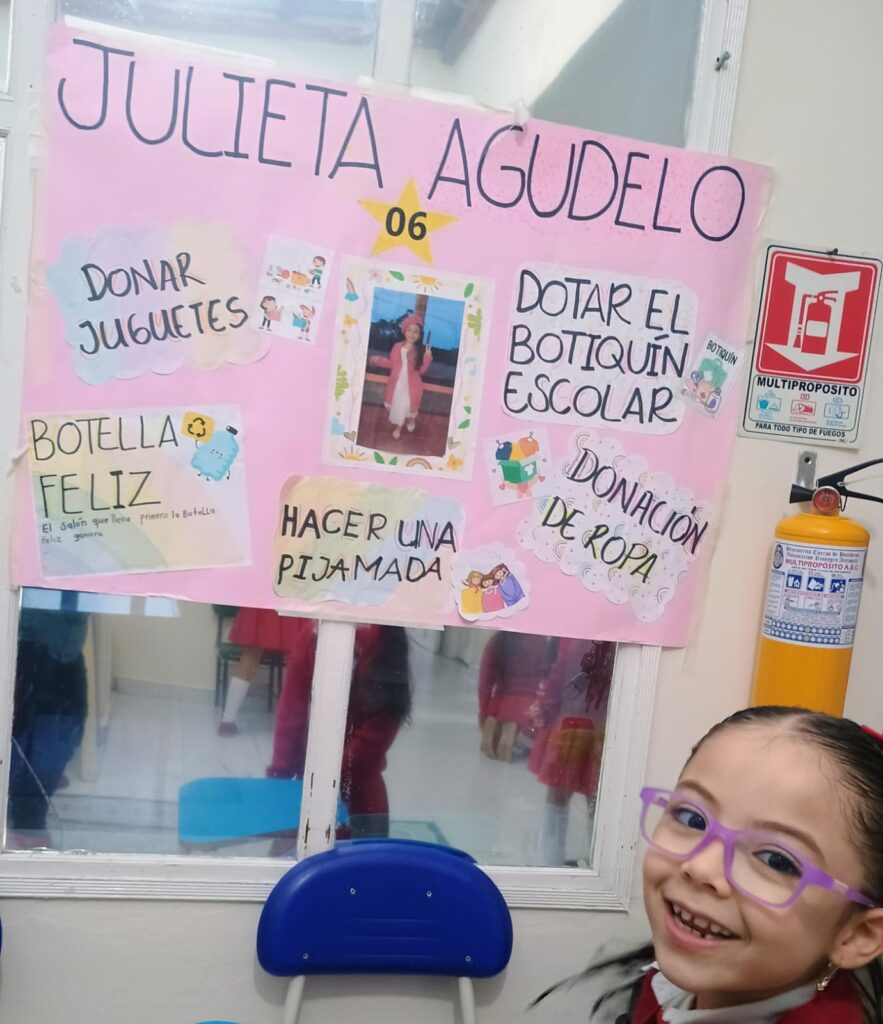 JULIETA AGUDELO
06
DONAR
JUGUETES
DOTAR EL
BOTIQUÍN
ESCOLAR
BOTIQUÍN
BOTELLA
FELIZ
El salón que llene primero la Botella
Feliz ganara
HACER UNA
PIJAMADA
DONACIÓN
DE ROPA
MULTIPROPOSITO
PARA TODO TIPO DE FUEGOS
MULTIPROPÓSITO A.B.C.